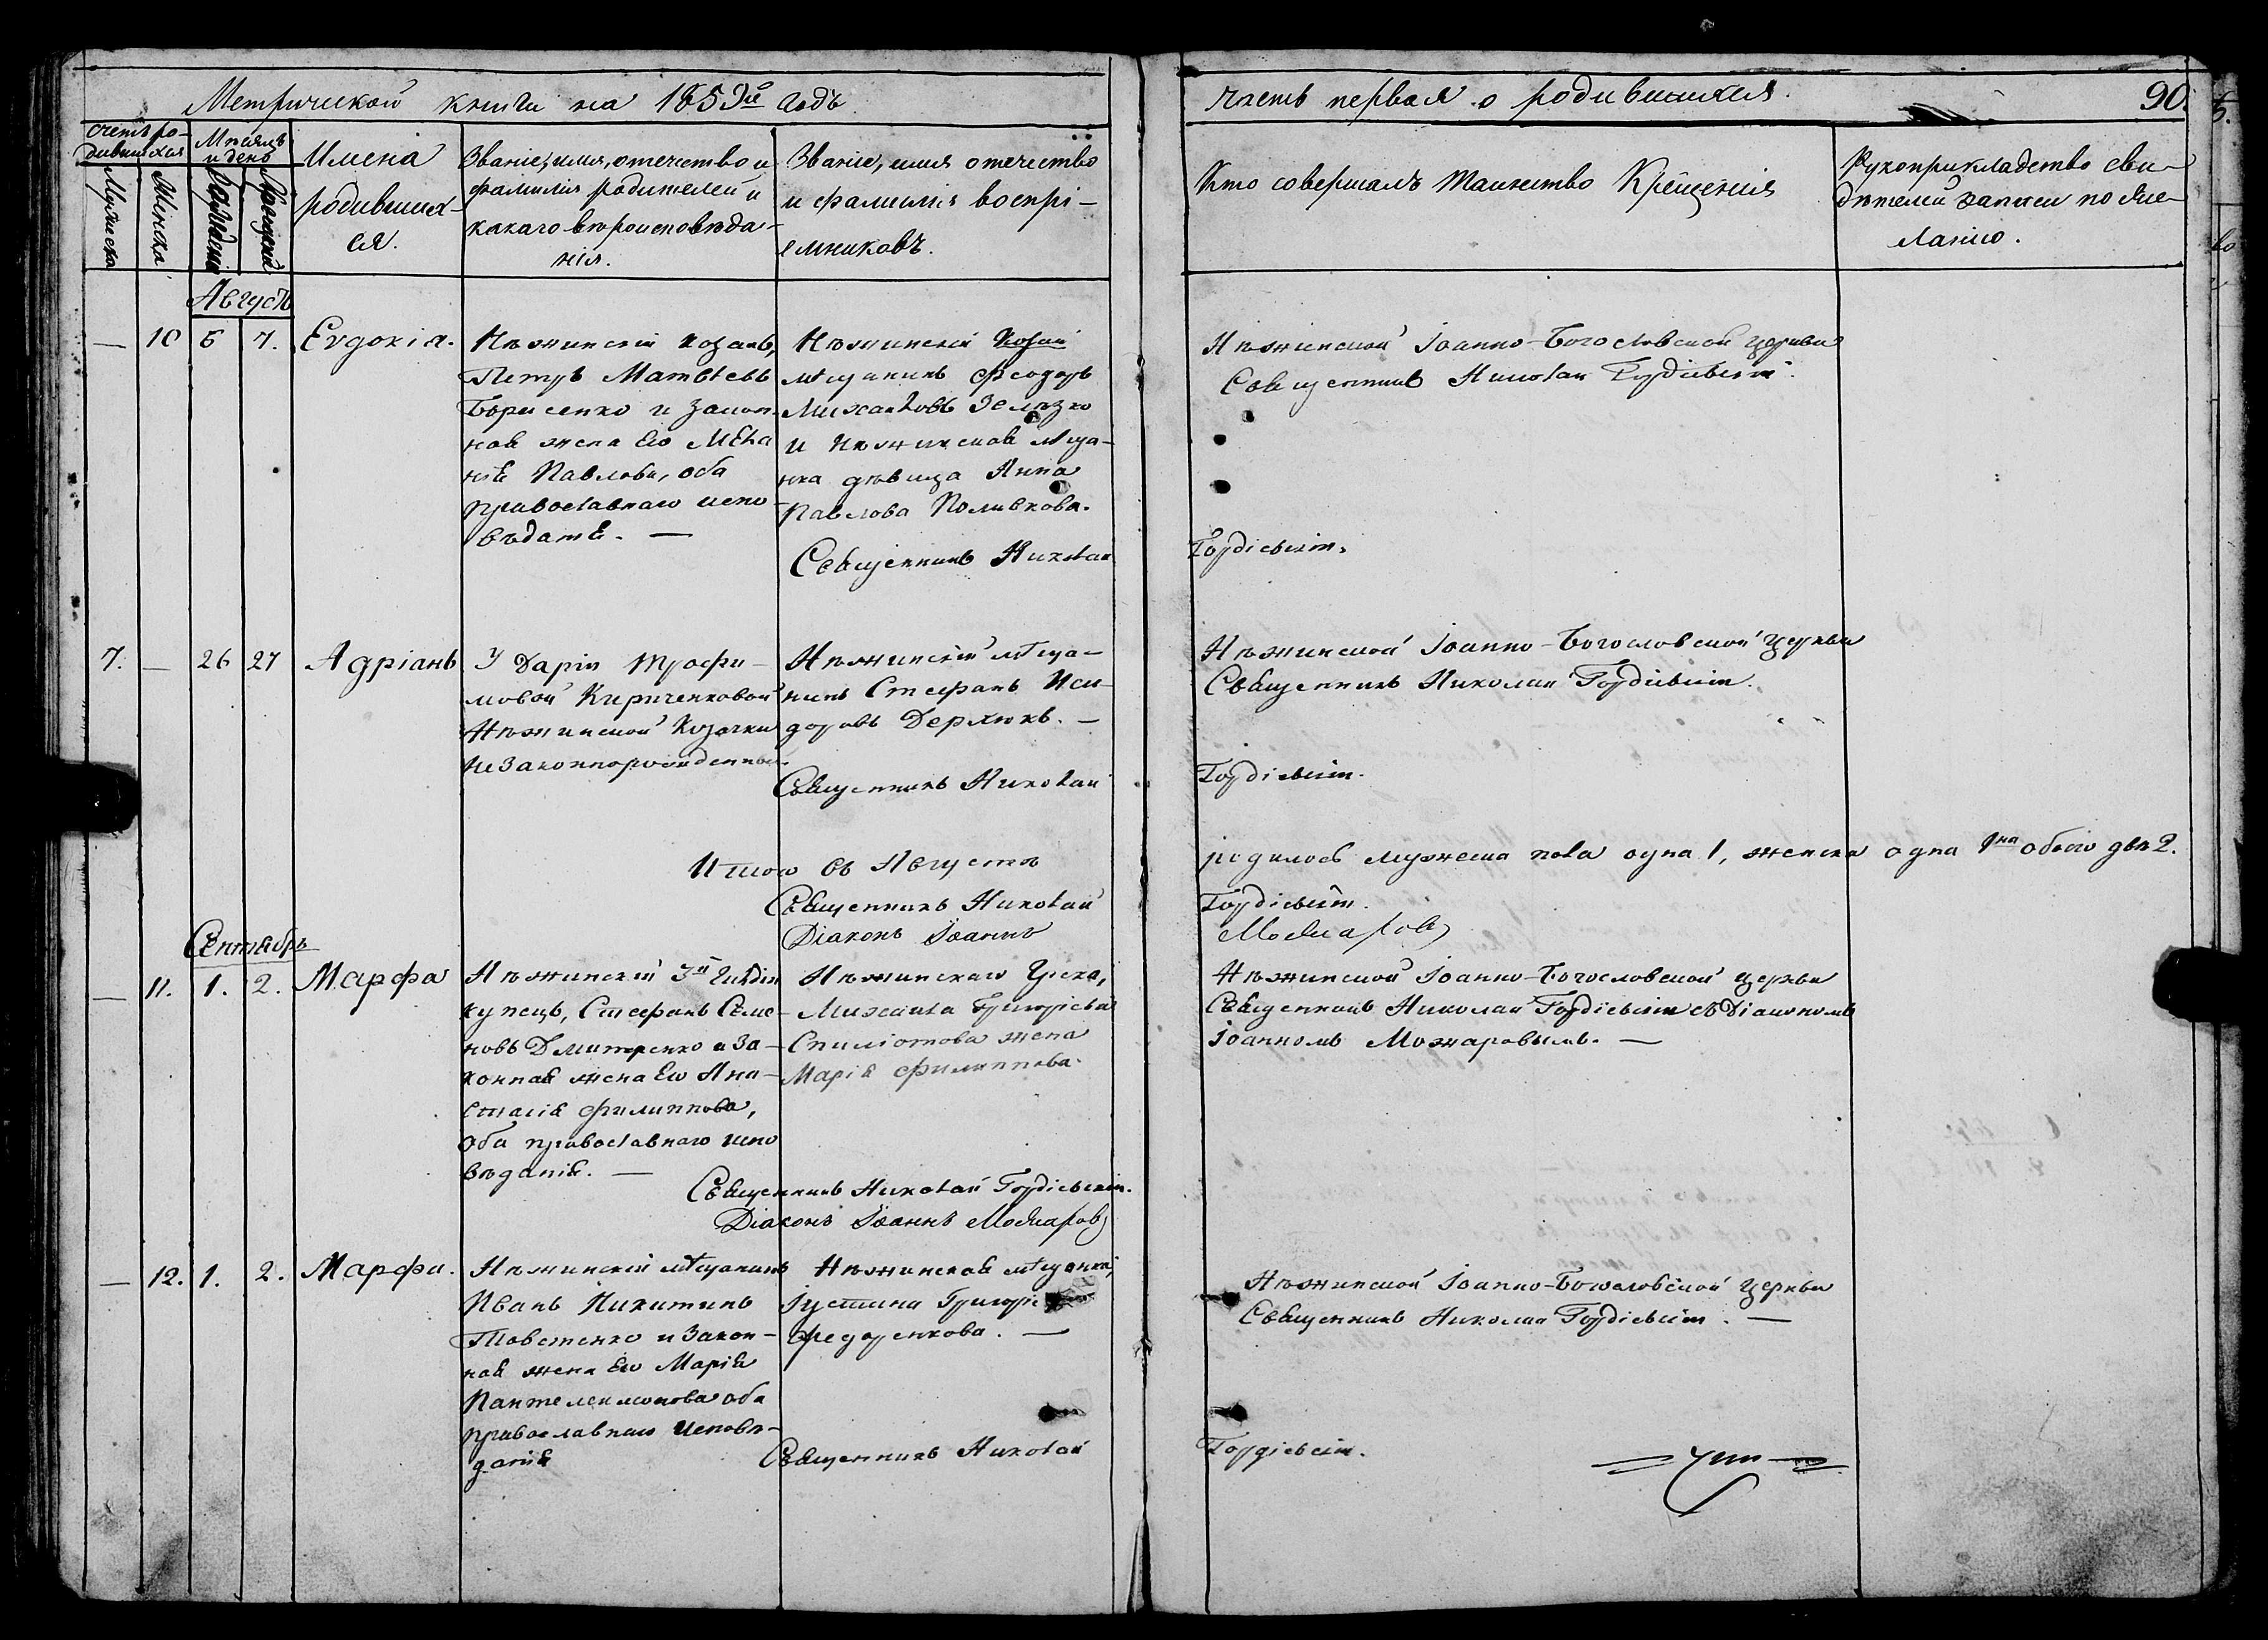 Метрической книги на 1853й годъ
часть первая о родившихся.
90.
Счетъ ро-
дившихся
Мѣсяцъ
и день
Мужеска
Женска
Рожденія
Крещенія
Имена
родивших-
ся.
Званіе, имя, отечество и
фамилія родителей и
какаго вѣроисповѣда-
нія.
Званіе, имя отечество
и фамилія воспрі-
емниковъ.
Кто совершалъ таинство Крещенія
Рукоприкладство сви-
дѣтелей записи по же-
ланію.
Августъ
— 10 6 7. Евдокія.
Нѣжинскій козакъ,
Петръ Матвѣевъ
Борисенко и закон-
ная жена его Мела
нія Павлова, оба
православнаго испо-
вѣданія. —
Нѣжинскій Козак
мѣщанинъ Феодоръ
Михайловъ Зелѣзко
и Нѣжинская мѣща-
нка дѣвица Анна
Павлова Поливкова.
Священникъ Николай
Нѣжинской Іоанно-Богословской Церкви
Священникъ Николай Гордіевскій.
Гордіевскій.
7. — 26 27 Адріанъ
У Даріи Трофи-
мовой Кириченковой
Нѣжинской Козачки
незаконнорожденный.
Нѣжинскій мѣща-
нинъ Стефанъ Иси-
доровъ Дерхюкъ. —
Священникъ Николай
Нѣжинской Іоанно-Богословской Церкви
Священникъ Николай Гордіевскій.
Гордіевскій.
Итого въ Августѣ
родилось мужеска пола одна 1, женска одна 1на обоего два 2.
Священникъ Николай
Гордіевскій.
Діаконъ Іоаннъ
Можаровъ
Сентябрь
— 11. 1. 2. Марфа
Нѣжинскій 3й Гильдіи
купецъ, Стефанъ Семе-
новъ Дмитренко и за-
конная жена его Ана-
стасія Филиппова,
оба православнаго испо
вѣданія. —
Нѣжинскаго Грека,
Михаила Григоріева
Спиліотова жена
Марія Филиппова.
Священникъ Николай Гордіевскій.
Діаконъ Іоаннъ Можаровъ
Нѣжинской Іоанно-Богословской церкви
Священникъ Николай Гордіевскій съ Діакономъ
Іоанномъ Можаровымъ. —
— 12. 1. 2. Марфа.
Нѣжинскій мѣщанинъ
Иванъ Никитинъ
Товстенко и закон-
ная жена его Марія
Пантелеимонова оба
православнаго исповѣ-
данія
Нѣжинская мѣщанка,
Іустина Григоріе
Федоренкова. —
Священникъ Николай
Нѣжинской Іоанно-Богословской церкви
Священникъ Николай Гордіевскій. —
Гордіевскій.